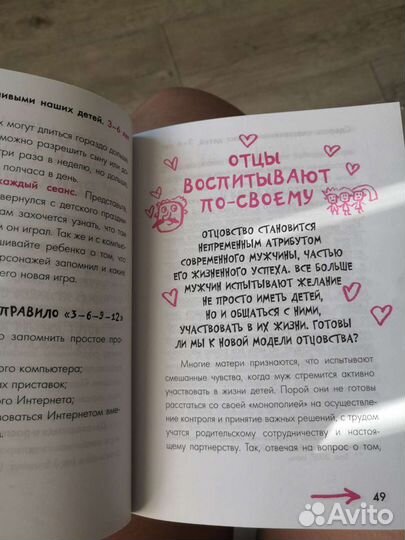 ивыми наших детей. 3–6 лет
х могут длиться гораздо дольше,
можно разрешить сыну или до
три раза в неделю, но дольше
полчаса в день.
каждый сеанс. Представьте,
вернулся с детского праздни
ам захочется узнать, что там
он играл. Так же и с компью
шивайте ребенка о том,
рсонажей запомнил и каких
его новая игра.
ПРАВИЛО «3–6–9–12»
о запомнить простое пра
ого компьютера;
х приставок;
ого Интернета;
зоваться Интернетом вме
ОТЦЫ
ВОСПИТЫВАЮТ
ПО-СВОЕМУ
ОТЦОВСТВО СТАНОВИТСЯ
НЕПРЕМЕННЫМ АТРИБУТОМ
СОВРЕМЕННОГО МУЖЧИНЫ, ЧАСТЬЮ
ЕГО ЖИЗНЕННОГО УСПЕХА. ВСЕ БОЛЬШЕ
МУЖЧИН ИСПЫТЫВАЮТ ЖЕЛАНИЕ
НЕ ПРОСТО ИМЕТЬ ДЕТЕЙ,
НО И ОБЩАТЬСЯ С НИМИ,
УЧАСТВОВАТЬ В ИХ ЖИЗНИ. ГОТОВЫ
ЛИ МЫ К НОВОЙ МОДЕЛИ ОТЦОВСТВА?
Многие матери признаются, что испытывают
смешанные чувства, когда муж стремится активно
участвовать в жизни детей. Порой они не готовы
расстаться со своей «монополией» на осуществле-
ние контроля и принятие важных решений, с трудом
учатся родительскому сотрудничеству и настоя-
щему партнерству. Так, отвечая на вопрос о том,
49
Avito